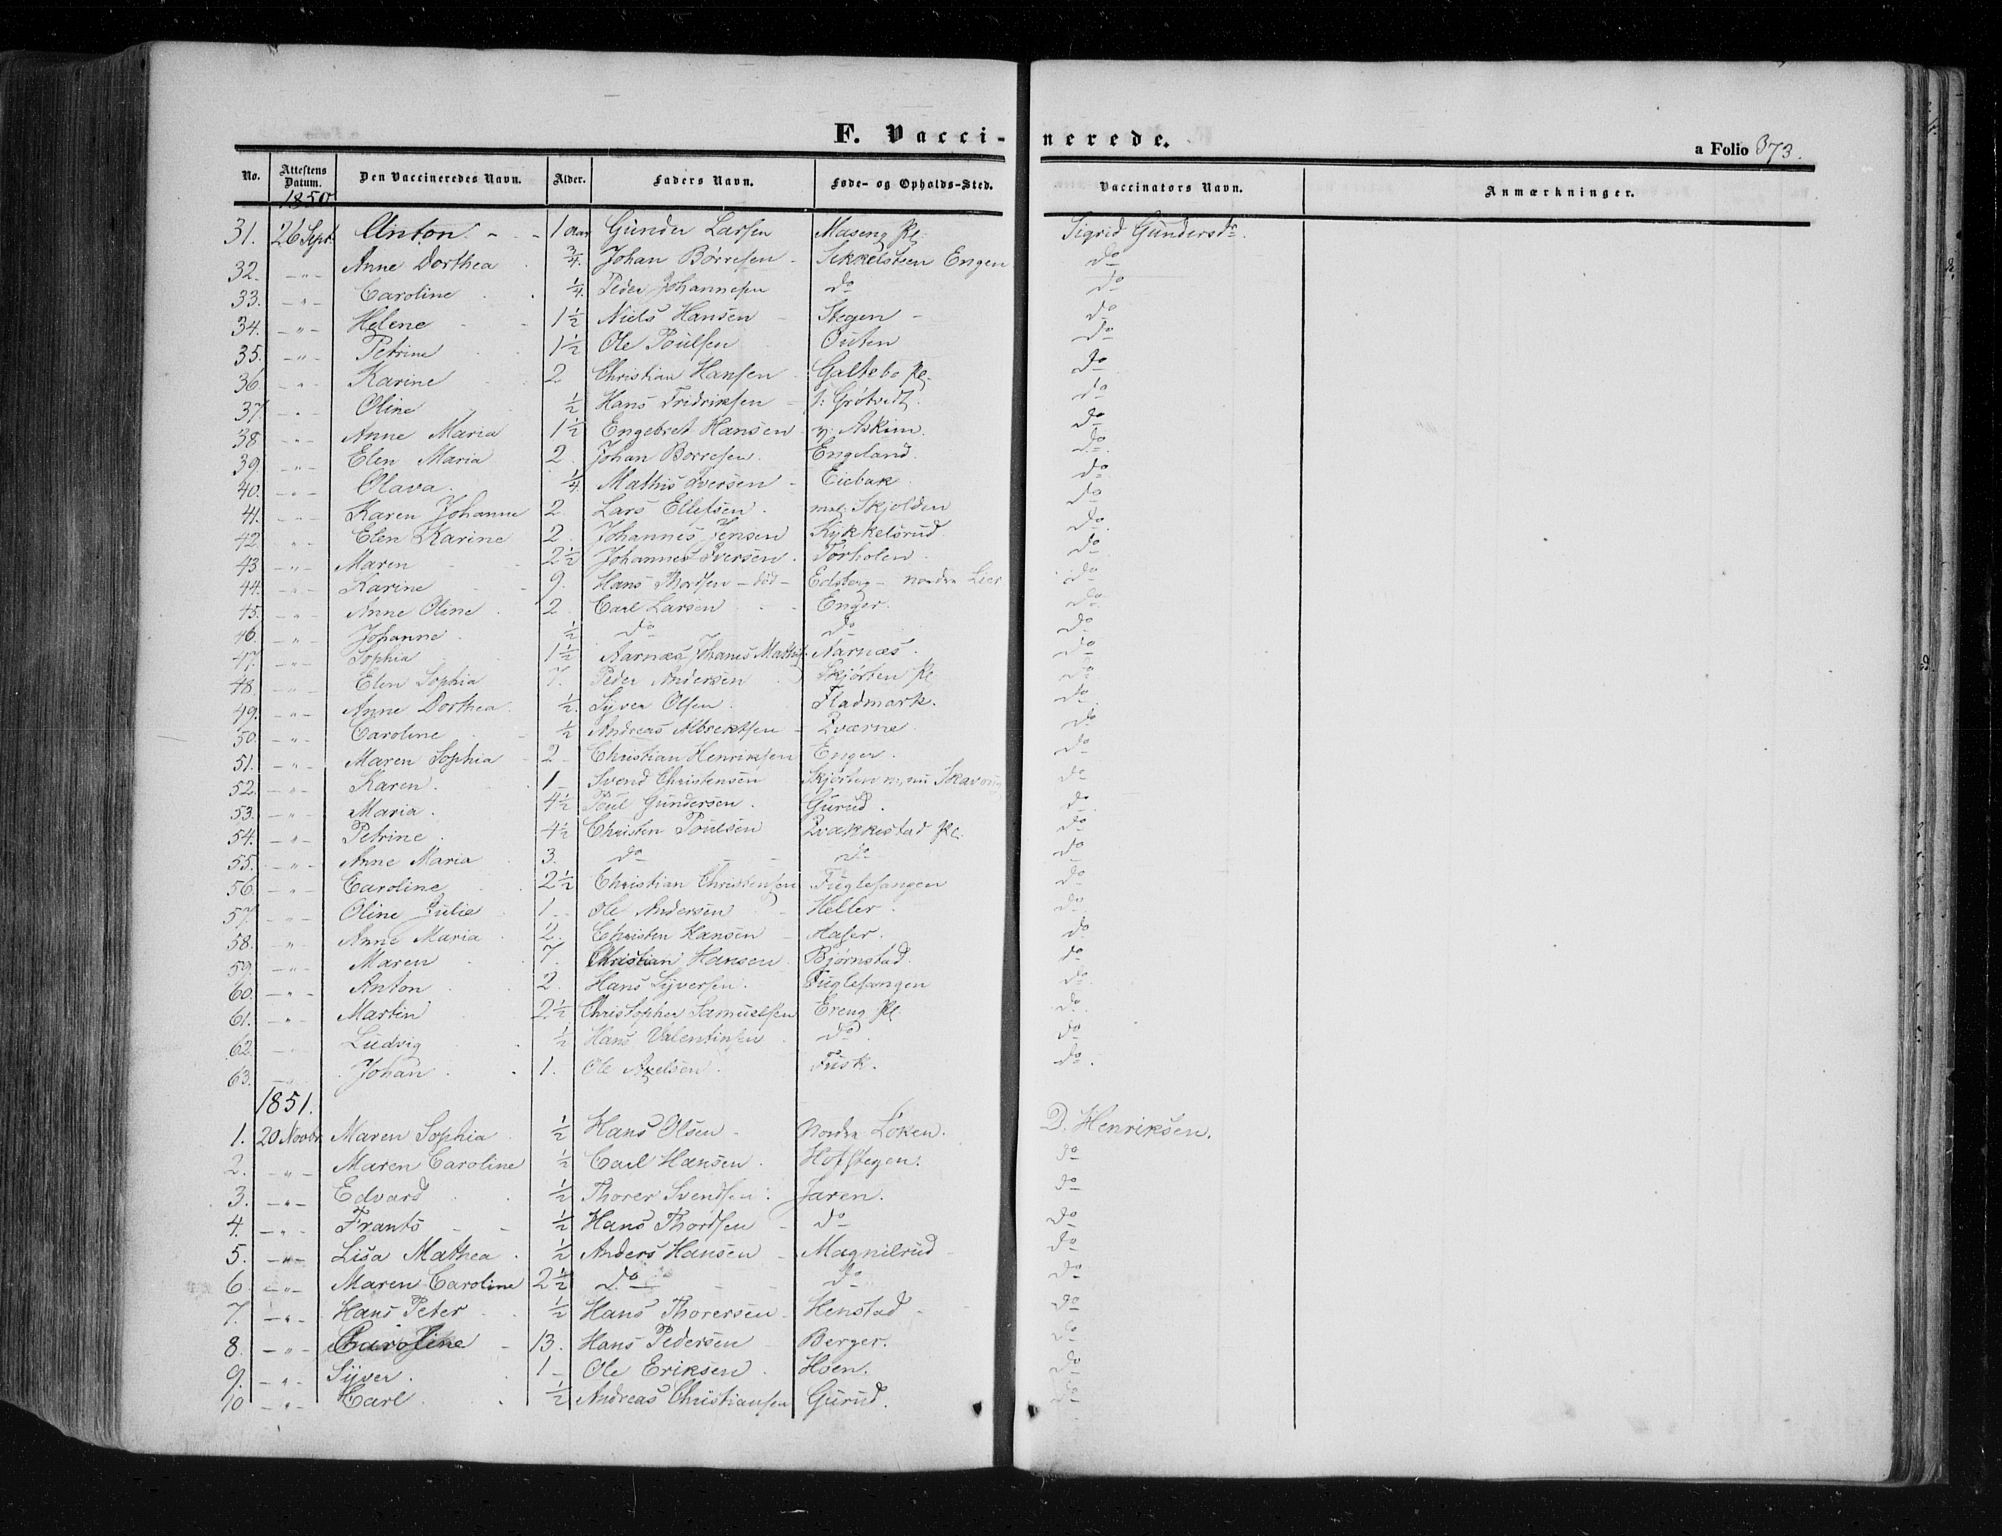 F. Vaccinerede.
a Folio 373.
No. Attestens Datum. Den Vaccineredes Navn. Alder. Faders Navn. Føde- og Opholds-Sted. Vaccinators Navn. Anmærkninger.
1850
31. 26 Sept. Anton - - 1 Aar Gunder Larsen Maseng Pl. Sigrid Gundersdr.
32. -"- Anne Dorthea 3/4 Johan Børresen - Sekkelsteen Engen do
33. -"- Caroline 1/4 Peder Johannesen do do
34. -"- Helene - - 1 1/2 Niels Hansen - Stegen - do
35. -"- Petrine 1 1/2 Ole Poulsen Outen do
36 -"- Karine 2 Christian Hansen Galtebo Pl. do
37 -"- Oline 1/2 Hans Fredriksen - s: Grøtvedt. do
38 -"- Anne Maria 1 1/2 Engebret Hansen v: Askim. do
39. -"- Elen Maria 2. Johan Borresen. Engeland. do.
40. -"- Olava. 1/4 Mathis Iversen - Eiebak. do
41. -"- Karen Johanne 2. Lars Ellefsen Skjolden do
42. -"- Elen Karine 2. Johannes Jensen Kykkelsrud. do.
43 -"- Maren - 2 1/2 Johannes Iversen. Torholen. do
44. -"- Karine - 9. Hans Thordsen - død - Edsberg - nordre Lier do
45. -"- Anne Oline 2. Carl Larsen - - Enger. do.
46. -"- Johanne. 1/2 do do do
47. -"- Sophia 1 1/2 Aarnæs Johanes Mathis. Aarnæs. do
48. -"- Elen Sophia 7. Peder Andersen Skjørten Pl do
49. -"- Anne Dorthea. 1/2. Syver Olsen. Fladmark. do.
50. -"- Caroline - 1/2 Andreas Albrektsen - Qværne do
51. -"- Maren Sophia - 2 - Christian Henriksen Enger. do
52. -"- Karen. 1 - Svend Christensen Skjørten do
53. -"- Maria. 4 1/2 Poul Gundersen. Gurud. do.
54. -"- Petrine. 4 1/2 Christen Poulsen Qvakkestad Pl. do
55. -"- Anne Maria 3. do - - do do
56. -"- Caroline 2 1/2 Christian Christensen Fuglesangen do
57. -"- Oline Julie 1 - Ole Andersen Heller. do.
58. -"- Anne Maria 2. Christen Hansen - Hager. do
59. -"- Maren 7. Christian Hansen. Bjørnstad. do
60. -"- Anton 2. Hans Syversen. Fuglesangen do
61. -"- Martin 2 1/2 Christopher Samuelsen Ereng Pl do.
62. -"- Ludvig 1/2 Hans Valentinsen do. do
63. -"- Johan. 1. Ole Axelsen. Fusk. do.
1851.
1. 20 Novbr. Maren Sophia 1/2 Hans Olsen - Nordre Løken. D. Henriksen.
2. -"- Maren Caroline 1/2 Carl Hansen. Hofstegen. do
3. -"- Edvard 1/2 Thorer Svendsen. Jaren. do
4. -"- Frants - - 1/2 Hans Thordsen - do do
5. -"- Lisa Mathea. 1/2 Anders Hansen - Magnilrud - do
6 -"- Maren Caroline 2 1/2 do - - do do
7. -"- Hans Peter 1/2 Hans Thorersen - Henstad - do
8 -"- Caroline - 13. Hans Pedersen Berger. do
9. -"- Syver. 1 - Ole Eriksen - Hoen. do
10 -"- Carl. 1/2 Andreas Christiansen Gurud. do